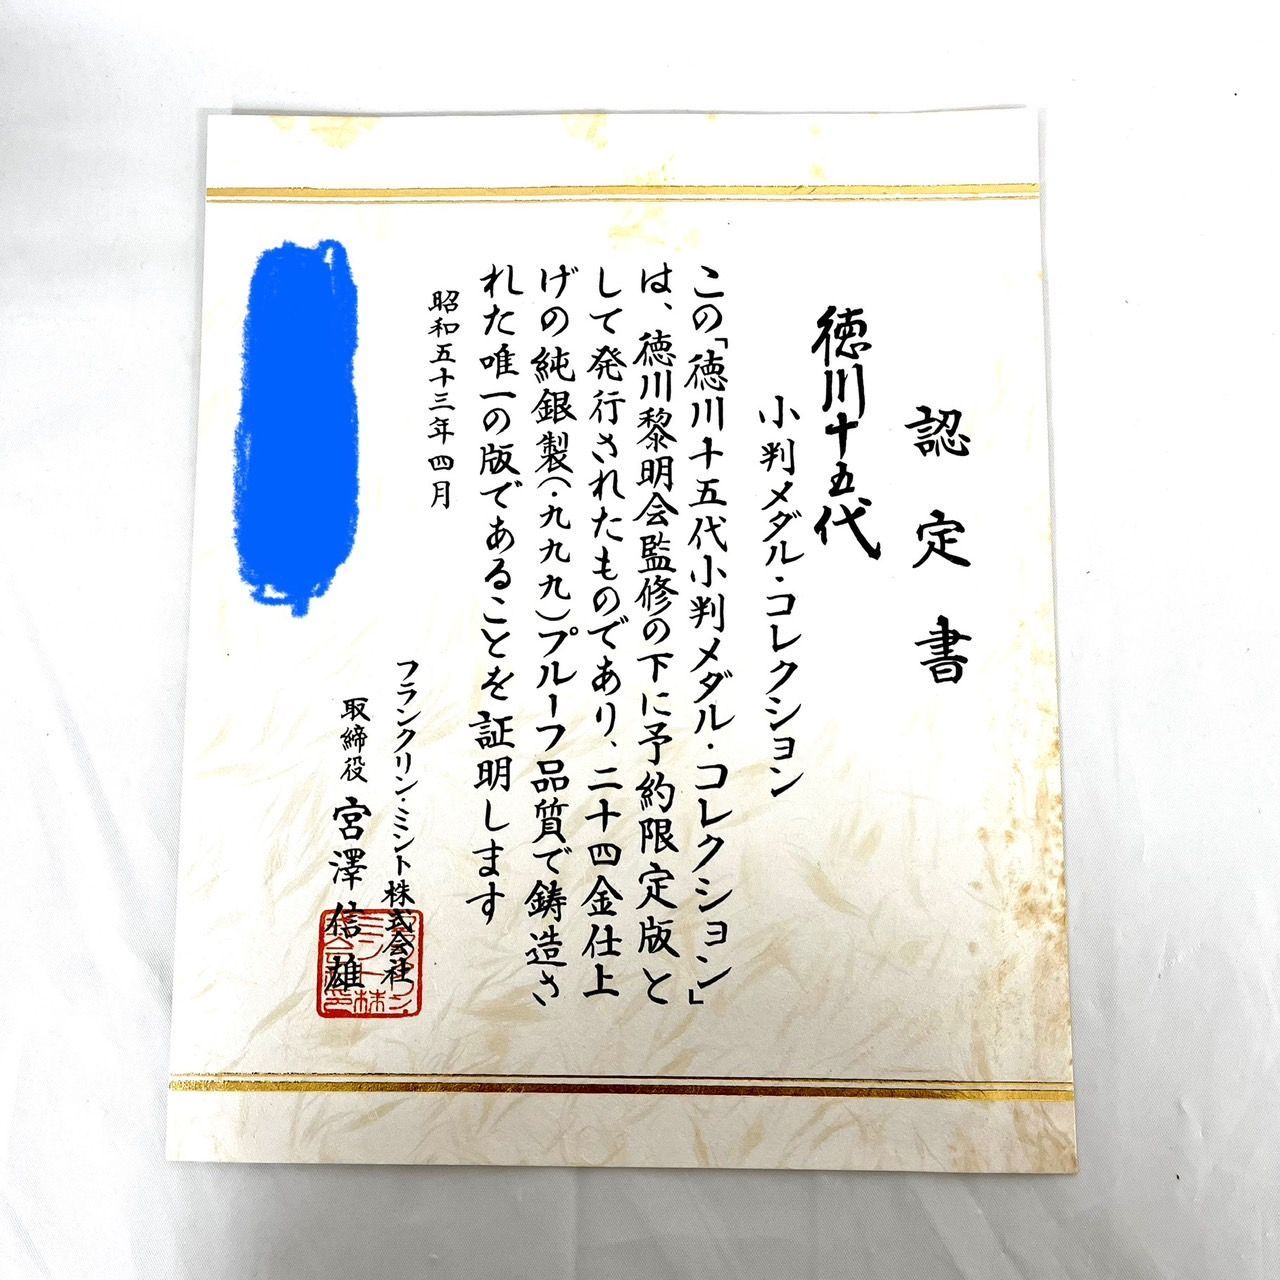 認定書
徳川十五代
小判メダル・コレクション
この「徳川十五代小判メダル・コレクション」
は、徳川黎明会監修の下に予約限定版と
して発行されたものであり、二十四金仕上
げの純銀製(・九九九)プルーフ品質で鋳造さ
れた唯一の版であることを証明します
昭和五十三年四月
フランクリン・ミント株式会社
取締役 宮澤信雄